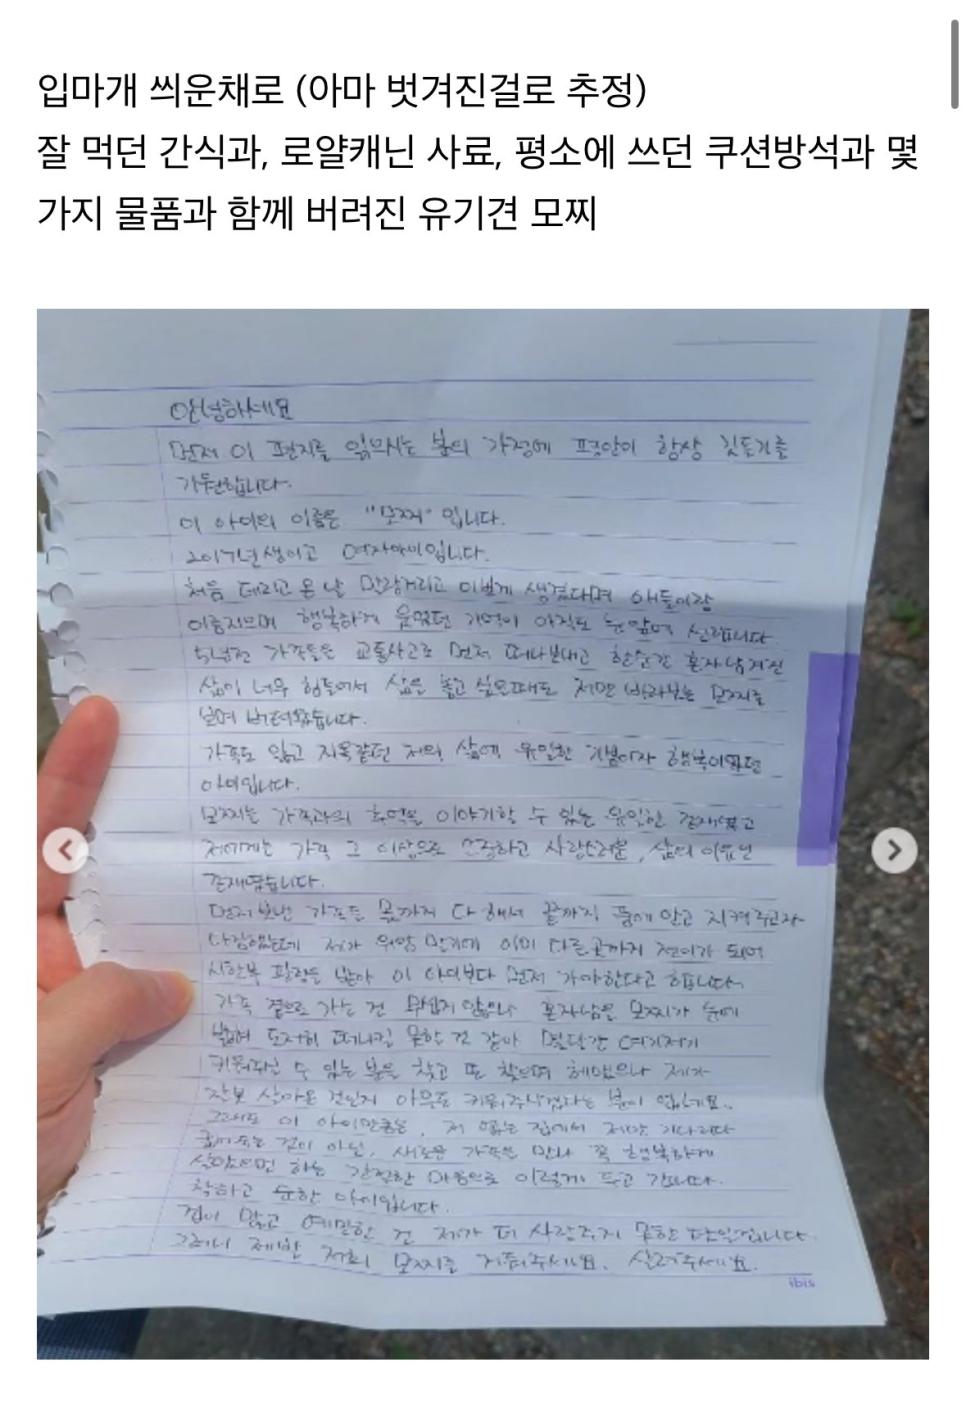 입마개 씌운채로 (아마 벗겨진걸로 추정)
잘 먹던 간식과, 로얄캐닌 사료, 평소에 쓰던 쿠션방석과 몇
가지 물품과 함께 버려진 유기견 모찌
안녕하세요
먼저 이 편지를 읽으시는 분의 가정에 평안이 항상 깃들기를
기원합니다.
이 아이의 이름은 "모찌" 입니다.
2017년생이고 여자아이입니다.
처음 데리고 온 날 말랑거리고 이쁘게 생겼다며 애들이랑
이름지으며 행복하게 웃었던 기억이 아직도 눈앞에 선합니다
5년전 가족들을 교통사고로 먼저 떠나보내고 한순간 혼자남겨진
삶이 너무 힘들어서 삶을 놓고 싶을때도 저만 바라보는 모찌를
보며 버텨왔습니다.
가족도 잃고 지옥같던 저의 삶에 유일한 기쁨이자 행복이었던
아이입니다.
모찌는 가족과의 추억을 이야기할 수 있는 유일한 존재였고
저에게는 가족 그 이상으로 소중하고 사랑스러운, 삶의 이유인
존재였습니다.
먼저보낸 가족들 몫까지 다해서 끝까지 품에 안고 지켜주고자
다짐했는데 제가 위암 말기에 이미 다른곳까지 전이가 되어
시한부 판정을 받아 이 아이보다 먼저 가야한다고 합니다.
가족 곁으로 가는 건 무섭지 않으나 혼자남을 모찌가 눈에
밟혀 도저히 떠나질 못할 것 같아 몇달간 여기저기
키워주실 수 있는 분을 찾고 또 찾으며 헤맸으나 제가
잘못 살아온 것인지 아무도 키워주시겠다는 분이 없네요..
그래도 이 아이만큼은, 저 없는 집에서 저만 기다리다
굶어죽는 것이 아닌, 새로운 가족을 만나 꼭 행복하게
살았으면 하는 간절한 마음으로 이렇게 두고 갑니다.
착하고 순한 아이입니다.
겁이 많고 예민한 건 제가 더 사랑주지 못한 탓일겁니다
그러니 제발 저희 모찌를 거둬주세요. 살려주세요.
ibis